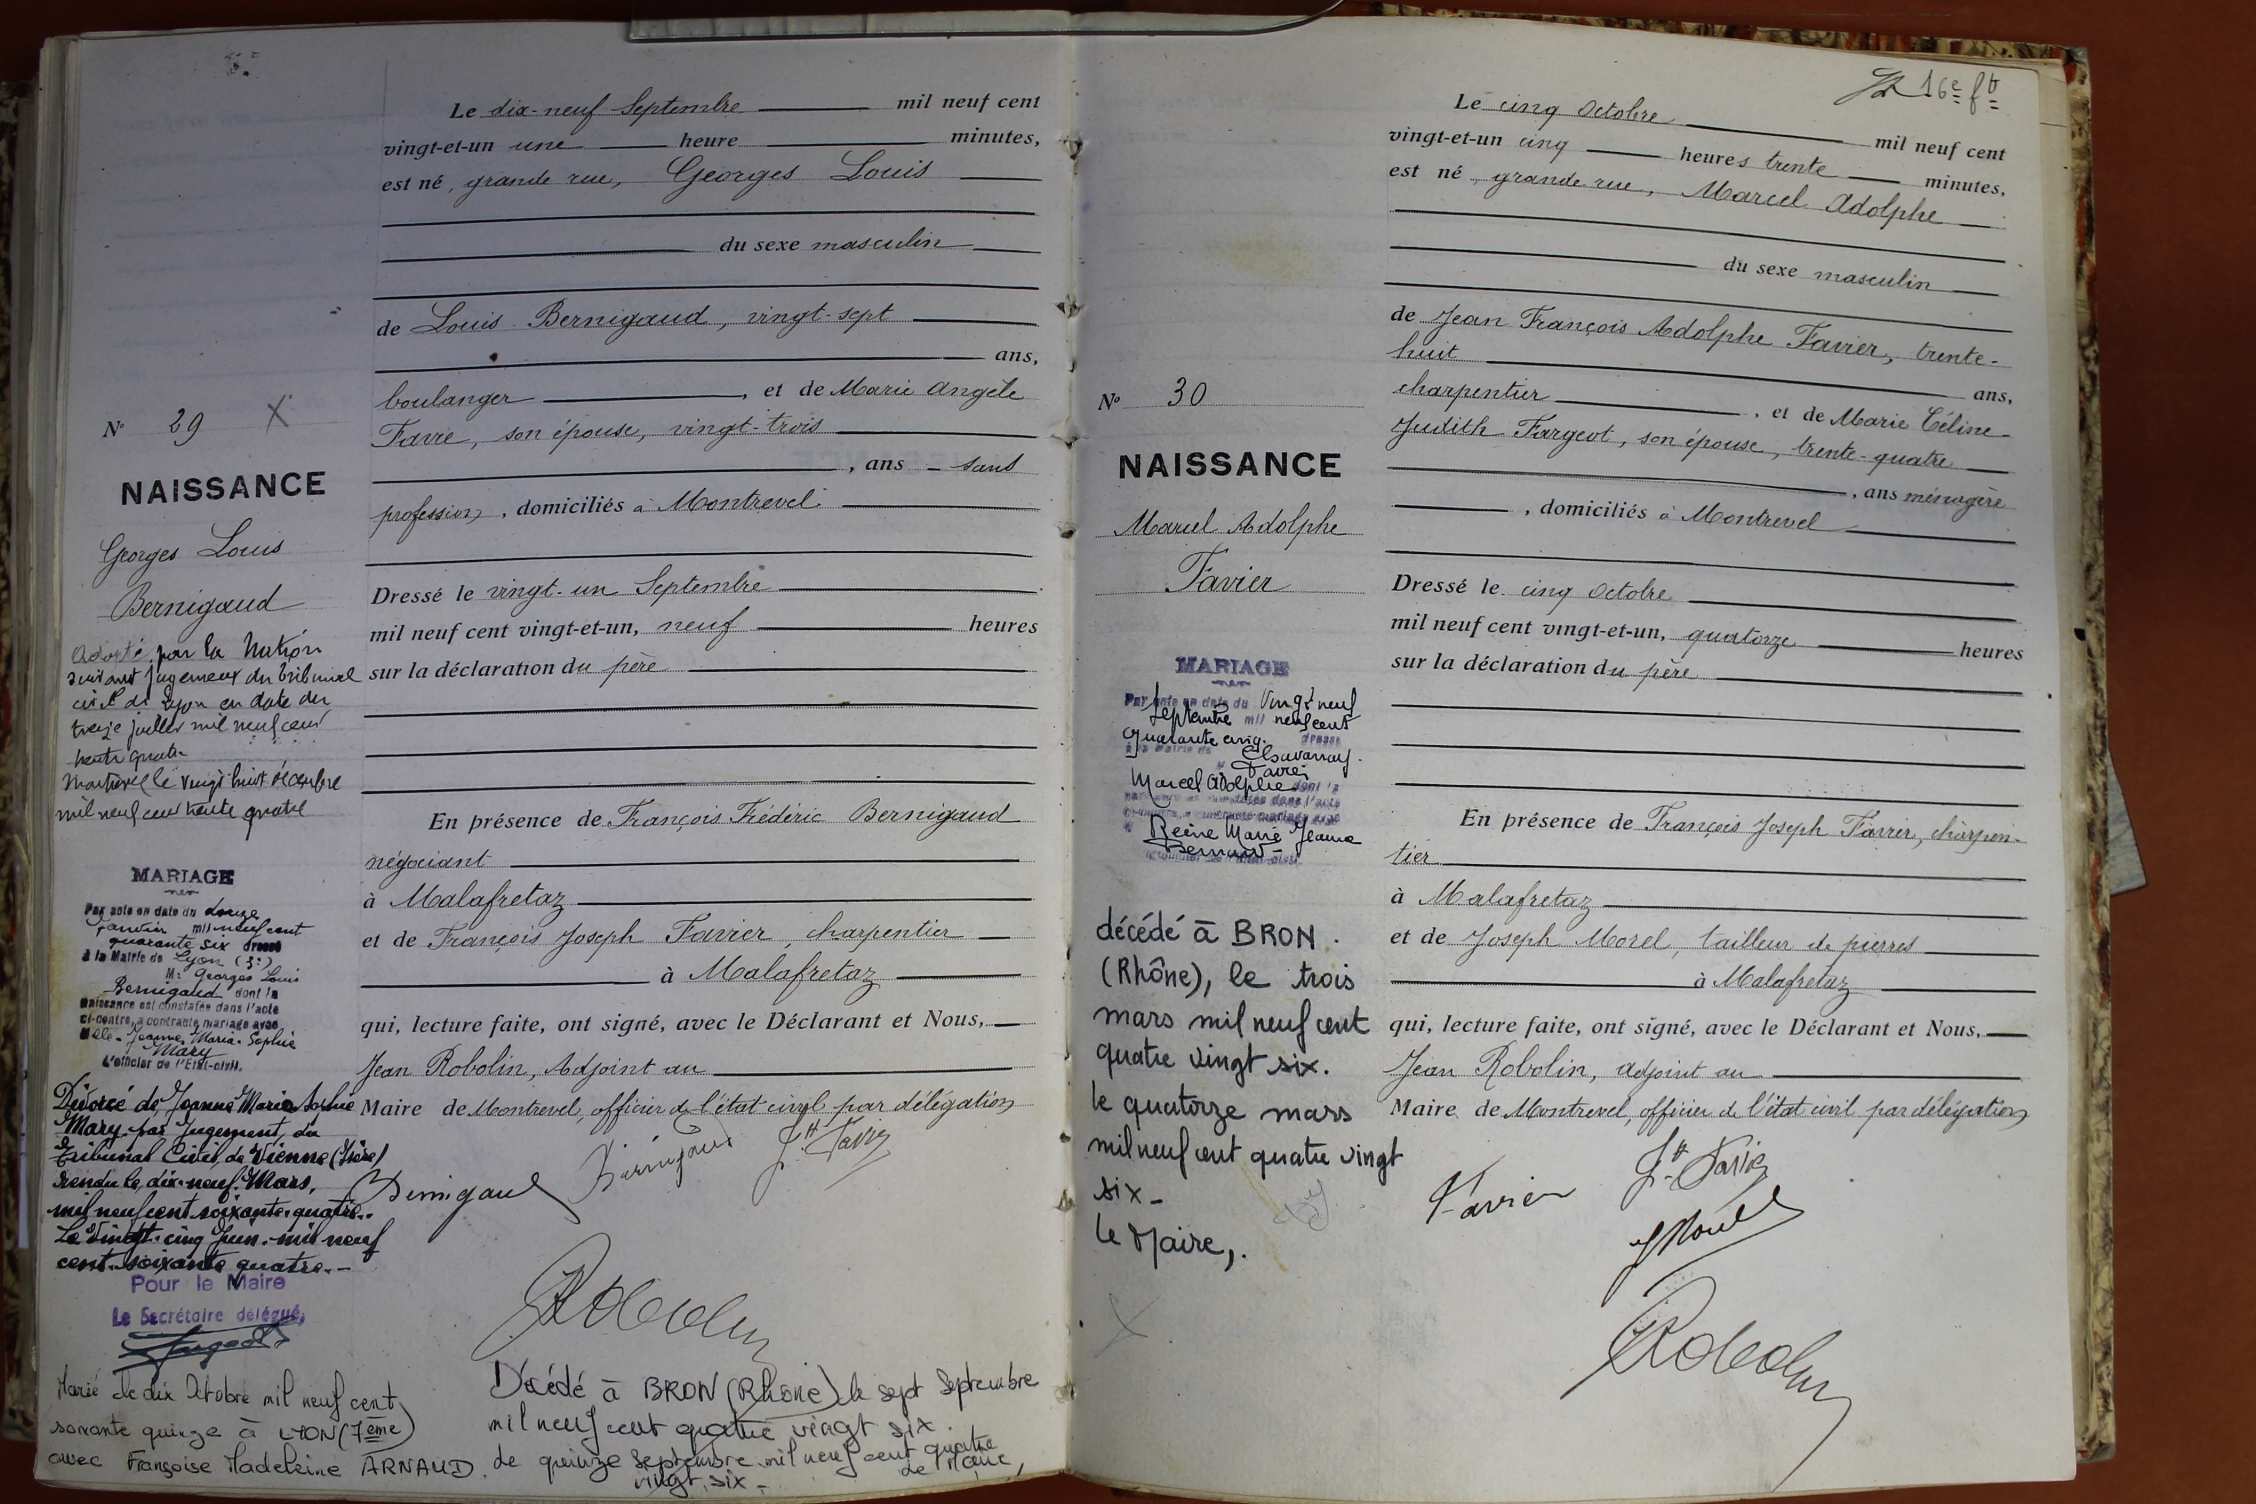 Le dix-neuf Septembre mil neuf cent
vingt-et-un une heure minutes,
est né, grande rue, Georges Louis
du sexe masculin
de Louis Bernigaud, vingt-sept
ans,
boulanger, et de Marie Angèle
Favre, son épouse, vingt-trois
, ans - sans
profession, domiciliés à Montrevel
Dressé le vingt-un Septembre
mil neuf cent vingt-et-un, neuf heures
sur la déclaration du père
En présence de François Frédéric Bernigaud
négociant
à Malafretaz
et de François Joseph Favier, charpentier
à Malafretaz
qui, lecture faite, ont signé, avec le Déclarant et Nous,
Jean Robolin, Adjoint au
Maire de Montrevel, officier de l'état civil par délégation
Bernigaud Bernigaud Jh Favier
JRobolin
Décédé à BRON (Rhône) le sept Septembre
mil neuf cent quatre vingt six.
de quinze Septembre mil neuf cent quatre
vingt six -
N° 29 X
NAISSANCE
Georges Louis
Bernigaud
Adopté par la Nation
suivant jugement du tribunal
civil de Lyon en date du
treize juillet mil neuf cent
trente quatre
Montrevel le vingt huit décembre
mil neuf cent trente quatre
MARIAGE
Par acte en date du douze
Janvier mil neuf cent
quarante six dressé
à la Mairie de Lyon (3e)
M. Georges Louis
Bernigaud dont la
naissance est constatée dans l'acte
ci-contre, a contracté mariage avec
Melle Jeanne Maria Sophie
Mary
L'officier de l'Etat-civil.
Divorcé de Jeanne Maria Sophie
Mary par jugement du
Tribunal Civil de Vienne (Isère)
rendu le dix-neuf Mars,
mil neuf cent soixante-quatre.-
Le Vingt-cinq Juin mil neuf
cent soixante quatre.-
Pour le Maire
Le Secrétaire délégué,
Marié le dix Octobre mil neuf cent
soixante quinze à LYON (7ème)
avec Françoise Madeleine ARNAUD.
16e ft
Le cinq Octobre mil neuf cent
vingt-et-un cinq heures trente minutes,
est né, grande rue, Marcel Adolphe
du sexe masculin
de Jean François Adolphe Favier, trente-
huit ans,
charpentier, et de Marie Céline
Judith Fargeot, son épouse, trente-quatre
, ans ménagère
, domiciliés à Montrevel
Dressé le cinq Octobre
mil neuf cent vingt-et-un, quatorze heures
sur la déclaration du père
En présence de François Joseph Favier, charpen-
tier
à Malafretaz
et de Joseph Morel, tailleur de pierres
à Malafretaz
qui, lecture faite, ont signé, avec le Déclarant et Nous,
Jean Robolin, adjoint au
Maire de Montrevel, officier de l'état civil par délégation
Favier Jh Favier
J Morel
JRobolin
N° 30
NAISSANCE
Marcel Adolphe
Favier
MARIAGE
Par acte en date du Vingt neuf
Septembre mil neuf cent
quarante cinq dressé
à la Mairie de
Favier
Marcel Adolphe dont la
naissance est constatée dans l'acte
ci-contre, a contracté mariage avec
Reine Marie Jeanne
L'officier de l'Etat-civil.
décédé à BRON.
(Rhône), le trois
mars mil neuf cent
quatre vingt six.
le quatorze mars
mil neuf cent quatre vingt
six -
Le Maire,.